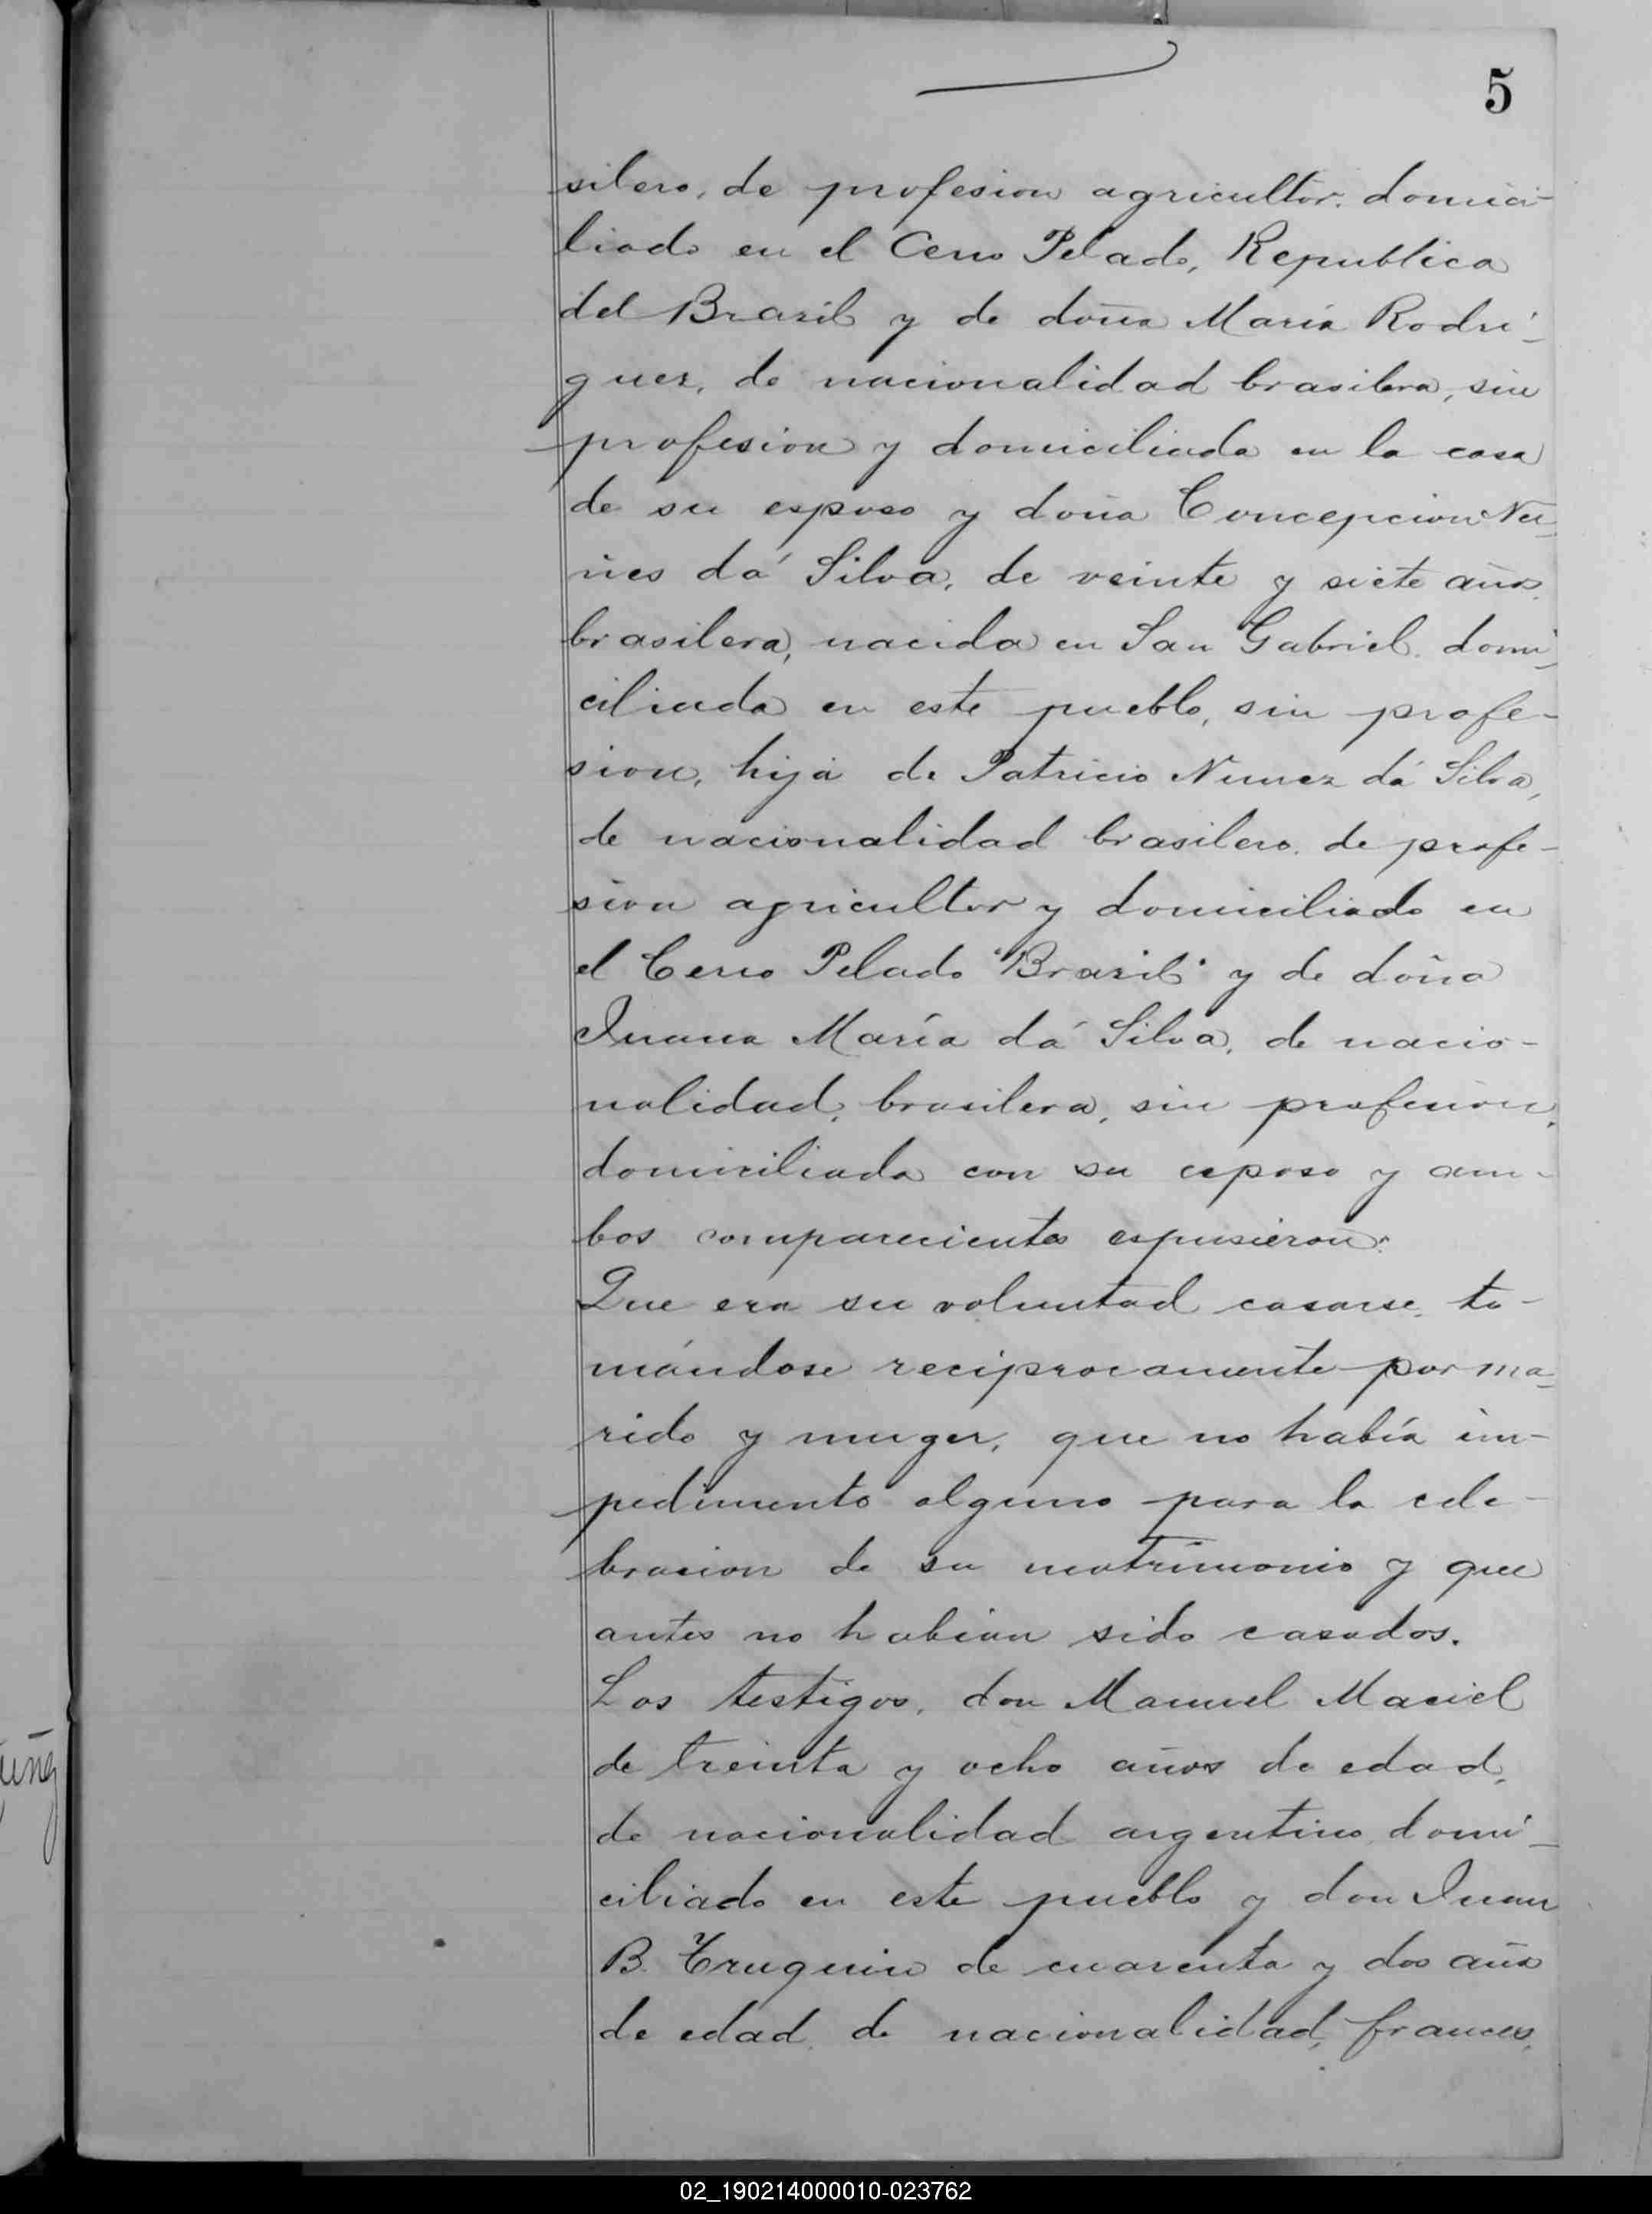 5
silero, de profesion agricultor. domici-
liado en el Cerro Pelado, Republica
del Brazil y de doña María Rodri-
guez, de nacionalidad brasilera, sin
profesion y domiciliada en la casa
de su esposo y doña Concepcion Nu-
ñes dá Silva, de veinte y siete años,
brasilera, nacida en San Gabriel. domi-
ciliada en este pueblo, sin profe-
sion, hija de Patricio Nunez dá Silva,
de nacionalidad brasilero. de profe-
sion agricultor y domiciliado en
el Cerro Pelado "Brazil" y de doña
Juana María dá Silva, de nacio-
nalidad, brasilera, sin profesion,
domiciliada con su esposo y am-
bos comparecientes espusieron:
Que era su voluntad casarse, to-
mándose reciprocamente por ma-
rido y muger, que no había im-
pedimento alguno para la cele-
bracion de su matrimonio y que
antes no habian sido casados.
Los testigos, don Manuel Maciel
de treinta y ocho años de edad,
de nacionalidad argentino, domi-
ciliado en este pueblo y don Juan
B. Truquin de cuarenta y dos años
de edad, de nacionalidad, frances,
02_190214000010-023762